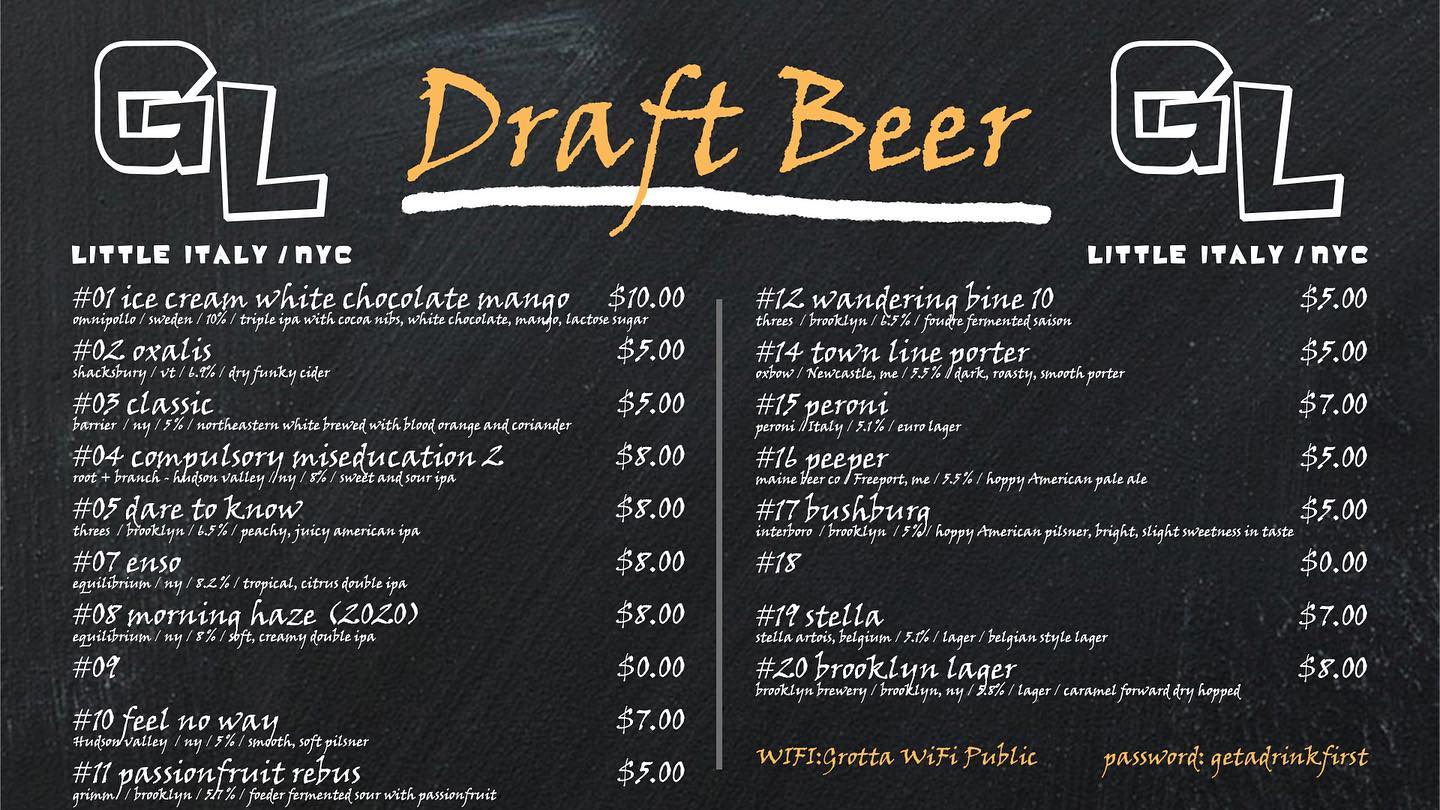 GL
Draft Beer
GL
LITTLE ITALY / NYC
LITTLE ITALY / NYC
#01 ice cream white chocolate mango $10.00
omnipollo / sweden / 10% / triple ipa with cocoa nibs, white chocolate, mango, lactose sugar
#02 oxalis $5.00
shacksbury / vt / 6.9% / dry funky cider
#03 classic $5.00
barrier / ny / 5% / northeastern white brewed with blood orange and coriander
#04 compulsory miseducation 2 $8.00
root + branch - hudson valley / ny / 8% / sweet and sour ipa
#05 dare to know $8.00
threes / brooklyn / 6.5% / peachy, juicy american ipa
#07 enso $8.00
equilibrium / ny / 8.2% / tropical, citrus double ipa
#08 morning haze (2020) $8.00
equilibrium / ny / 8% / soft, creamy double ipa
#09 $0.00
#10 feel no way $7.00
Hudson valley / ny / 5% / smooth, soft pilsner
#11 passionfruit rebus $5.00
grimm / brooklyn / 5.7% / foeder fermented sour with passionfruit
#12 wandering bine 10 $5.00
threes / brooklyn / 6.5% / foudre fermented saison
#14 town line porter $5.00
oxbow / Newcastle, me / 5.5% / dark, roasty, smooth porter
#15 peroni $7.00
peroni / Italy / 5.1% / euro lager
#16 peeper $5.00
maine beer co / Freeport, me / 5.5% / hoppy American pale ale
#17 bushburg $5.00
interboro / brooklyn / 5% / hoppy American pilsner, bright, slight sweetness in taste
#18 $0.00
#19 stella $7.00
stella artois, belgium / 5.1% / lager / belgian style lager
#20 brooklyn lager $8.00
brooklyn brewery / brooklyn, ny / 5.8% / lager / caramel forward dry hopped
WIFI:Grotta WiFi Public password: getadrinkfirst